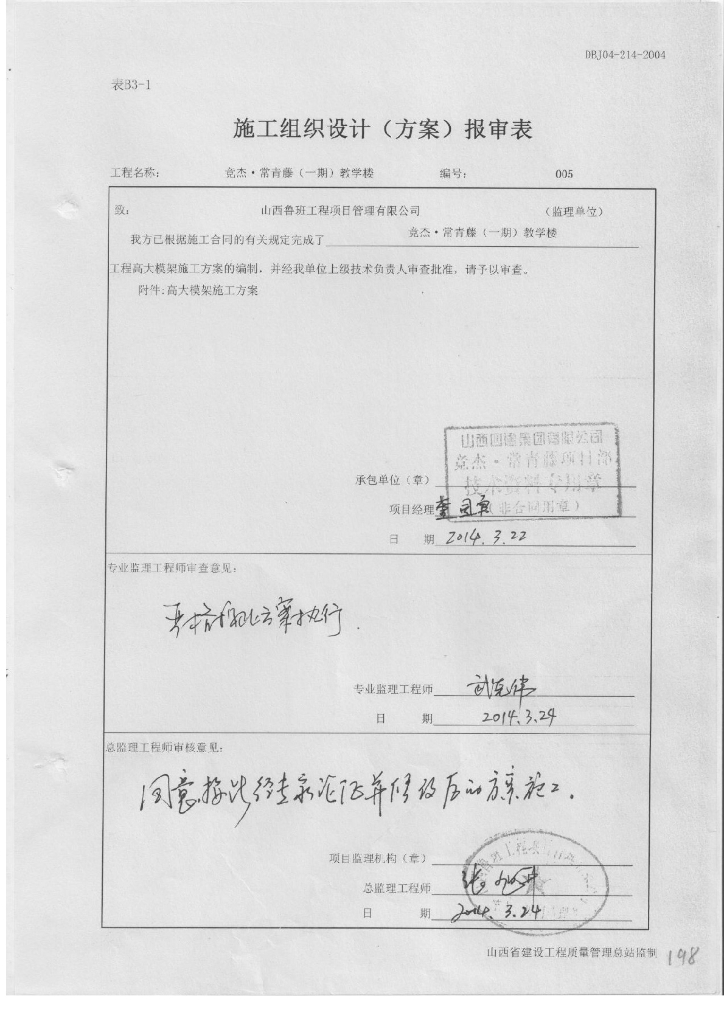 DBJ04-214-2004
表B3-1
施工组织设计（方案）报审表
工程名称： 竞杰·常青藤（一期）教学楼 编号： 005
致： 山西鲁班工程项目管理有限公司 （监理单位）
我方已根据施工合同的有关规定完成了 竞杰·常青藤（一期）教学楼
工程高大模架施工方案的编制，并经我单位上级技术负责人审查批准，请予以审查。
附件:高大模架施工方案
山西四建集团有限公司
竞杰·常青藤项目部
技术资料专用章
（非合同用章）
承包单位（章）
项目经理
日 期 2014.3.22
专业监理工程师审查意见：
严格按此方案执行.
专业监理工程师
日 期 2014.3.24
总监理工程师审核意见：
同意按此经专家论证并修改后的方案施工.
项目监理机构（章）
总监理工程师
日 期 2014.3.24
山西省建设工程质量管理总站监制 198